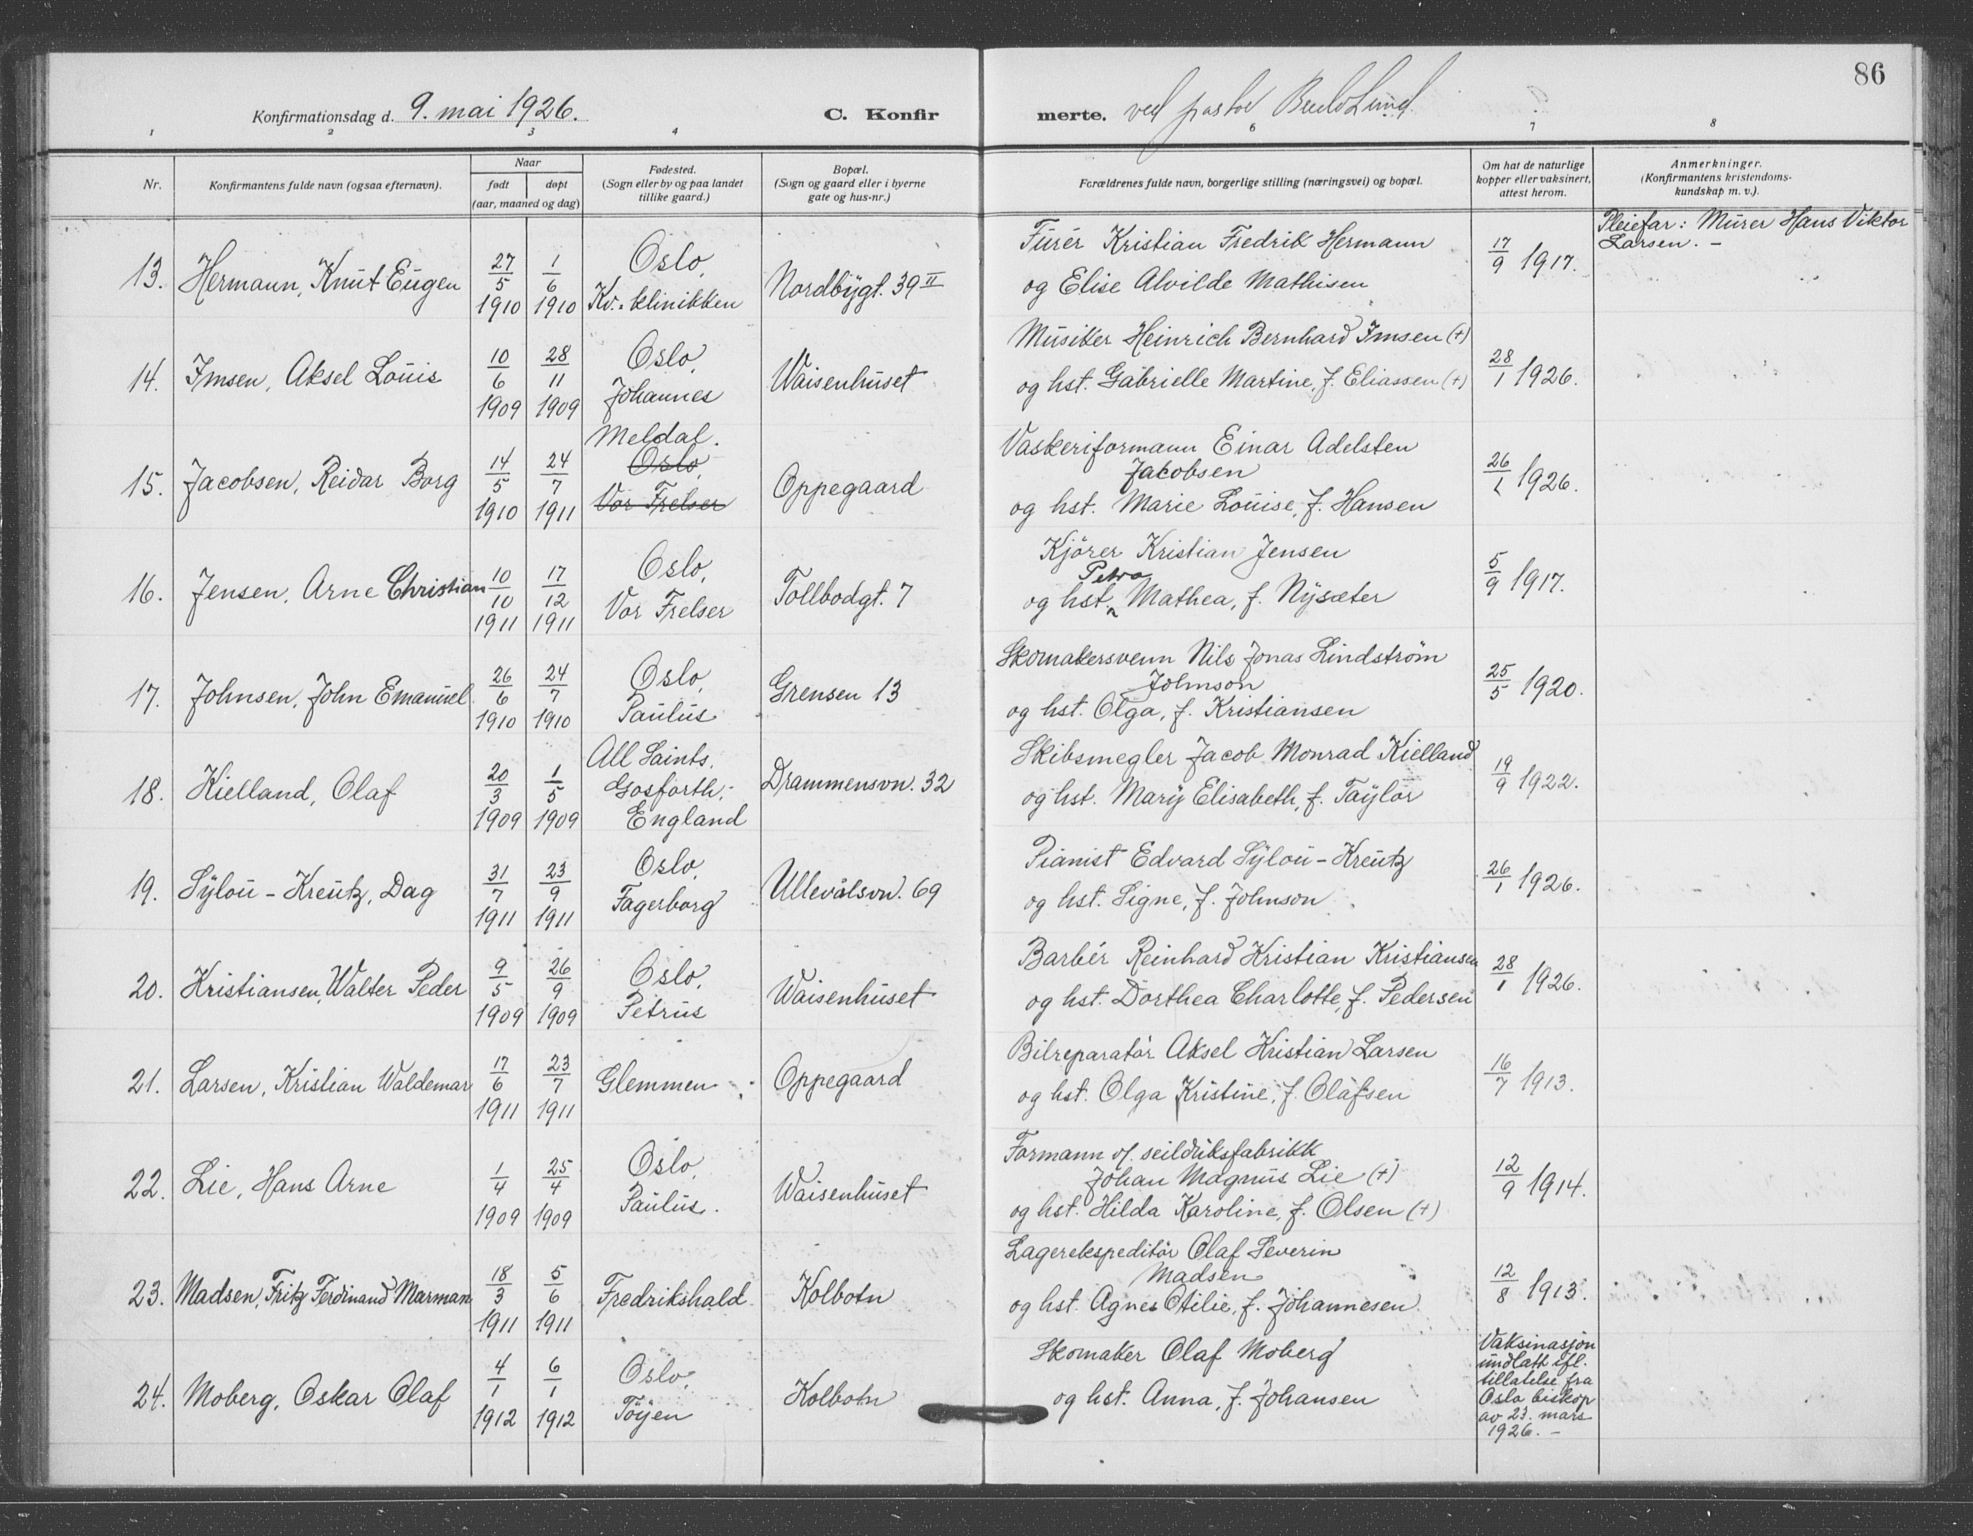 86
Konfirmationsdag d. 9. mai 1926.
C. Konfirmerte. ved pastor Lund
1 2 3 4 6 7 8
Nr.
Konfirmantens fulde navn (ogsaa efternavn).
Naar
født døpt
(aar, maaned og dag)
Fødested.
(Sogn eller by og paa landet
tillike gaard.)
Bopæl.
(Sogn og gaard eller i byerne
gate og hus-nr.)
Forældrenes fulde navn, borgerlige stilling (næringsvei) og bopæl.
Om hat de naturlige
kopper eller vaksinert,
attest herom.
Anmerkninger.
(Konfirmantens kristendoms-
kundskap m. v.).
13. Hermann, Knut Eugen 27/5 1910 1/6 1910 Oslo, Kv.-klinikken Nordbygt. 39 II
Furér Kristian Fredrik Hermann
og Elise Alvilde Mathisen
17/9 1917.
Pleiefar: Murer Hans Viktor
Larsen. –
14. Imsen, Aksel Louis 10/6 1909 28/11 1909 Oslo, Johannes Waisenhuset
Musiker Heinrich Bernhard Imsen (+)
og hst. Gabrielle Martine, f. Eliassen (+)
28/1 1926.
15. Jacobsen, Reidar Borg 14/5 1910 24/7 1911 Meldal. Oslo, Vor Frelser Oppegaard
Vaskeriformann Einar Adelsten
Jacobsen
og hst. Marie Louise, f. Hansen
26/1 1926.
16. Jensen, Arne Christian 10/10 1911 17/12 1911 Oslo, Vor Frelser Tollbodgt. 7
Kjörer Kristian Jensen
Petra
og hst. Mathea, f. Nysæter
5/9 1917.
17. Johnsen, John Emanuel 26/6 1910 24/7 1910 Oslo, Paulus Grensen 13
Skomakersvenn Nils Jonas Lindstrøm
Johnson
og hst. Olga, f. Kristiansen
25/5 1920.
18. Kielland, Olaf 20/3 1909 1/5 1909 All Saints, Gosforth, England Drammensvn. 32
Skibsmegler Jacob Monrad Kielland
og hst. Mary Elisabeth, f. Taylor
19/9 1922.
19. Sylou-Kreutz, Dag 31/7 1911 23/9 1911 Oslo, Fagerborg Ullevålsvn. 69
Pianist Edvard Sylou-Kreutz
og hst. Signe, f. Johnson
26/1 1926.
20. Kristiansen, Walter Peder 9/5 1909 26/9 1909 Oslo, Petrus Waisenhuset
Barbér Reinhard Kristian Kristiansen
og hst. Dorthea Charlotte, f. Pedersen
28/1 1926.
21. Larsen, Kristian Waldemar 17/6 1911 23/7 1911 Glemmen Oppegaard
Bilreparatör Aksel Kristian Larsen
og hst. Olga Kristine, f. Olafsen
16/7 1913.
22. Lie, Hans Arne 1/4 1909 25/4 1909 Oslo, Paulus. Waisenhuset
Formann v/ seilduksfabrikk
Johan Magnus Lie (+)
og hst. Hilda Karoline, f. Olsen (+)
12/9 1914.
23. Madsen, Fritz Ferdinand Marman 18/3 1911 5/6 1911 Fredrikshald Kolbotn
Lagerekspeditör Olaf Severin
Madsen
og hst. Agnes Otilie, f. Johannesen.
12/8 1913.
24. Moberg, Oskar Olaf 4/1 1912 6/1 1912 Oslo, Töyen Kolbotn
Skomaker Olaf Moberg
og hst. Anna, f. Johansen
Vaksinasjon
undlatt ifl.
tillatelse fra
Oslo biskop
av 23. mars
1926. –